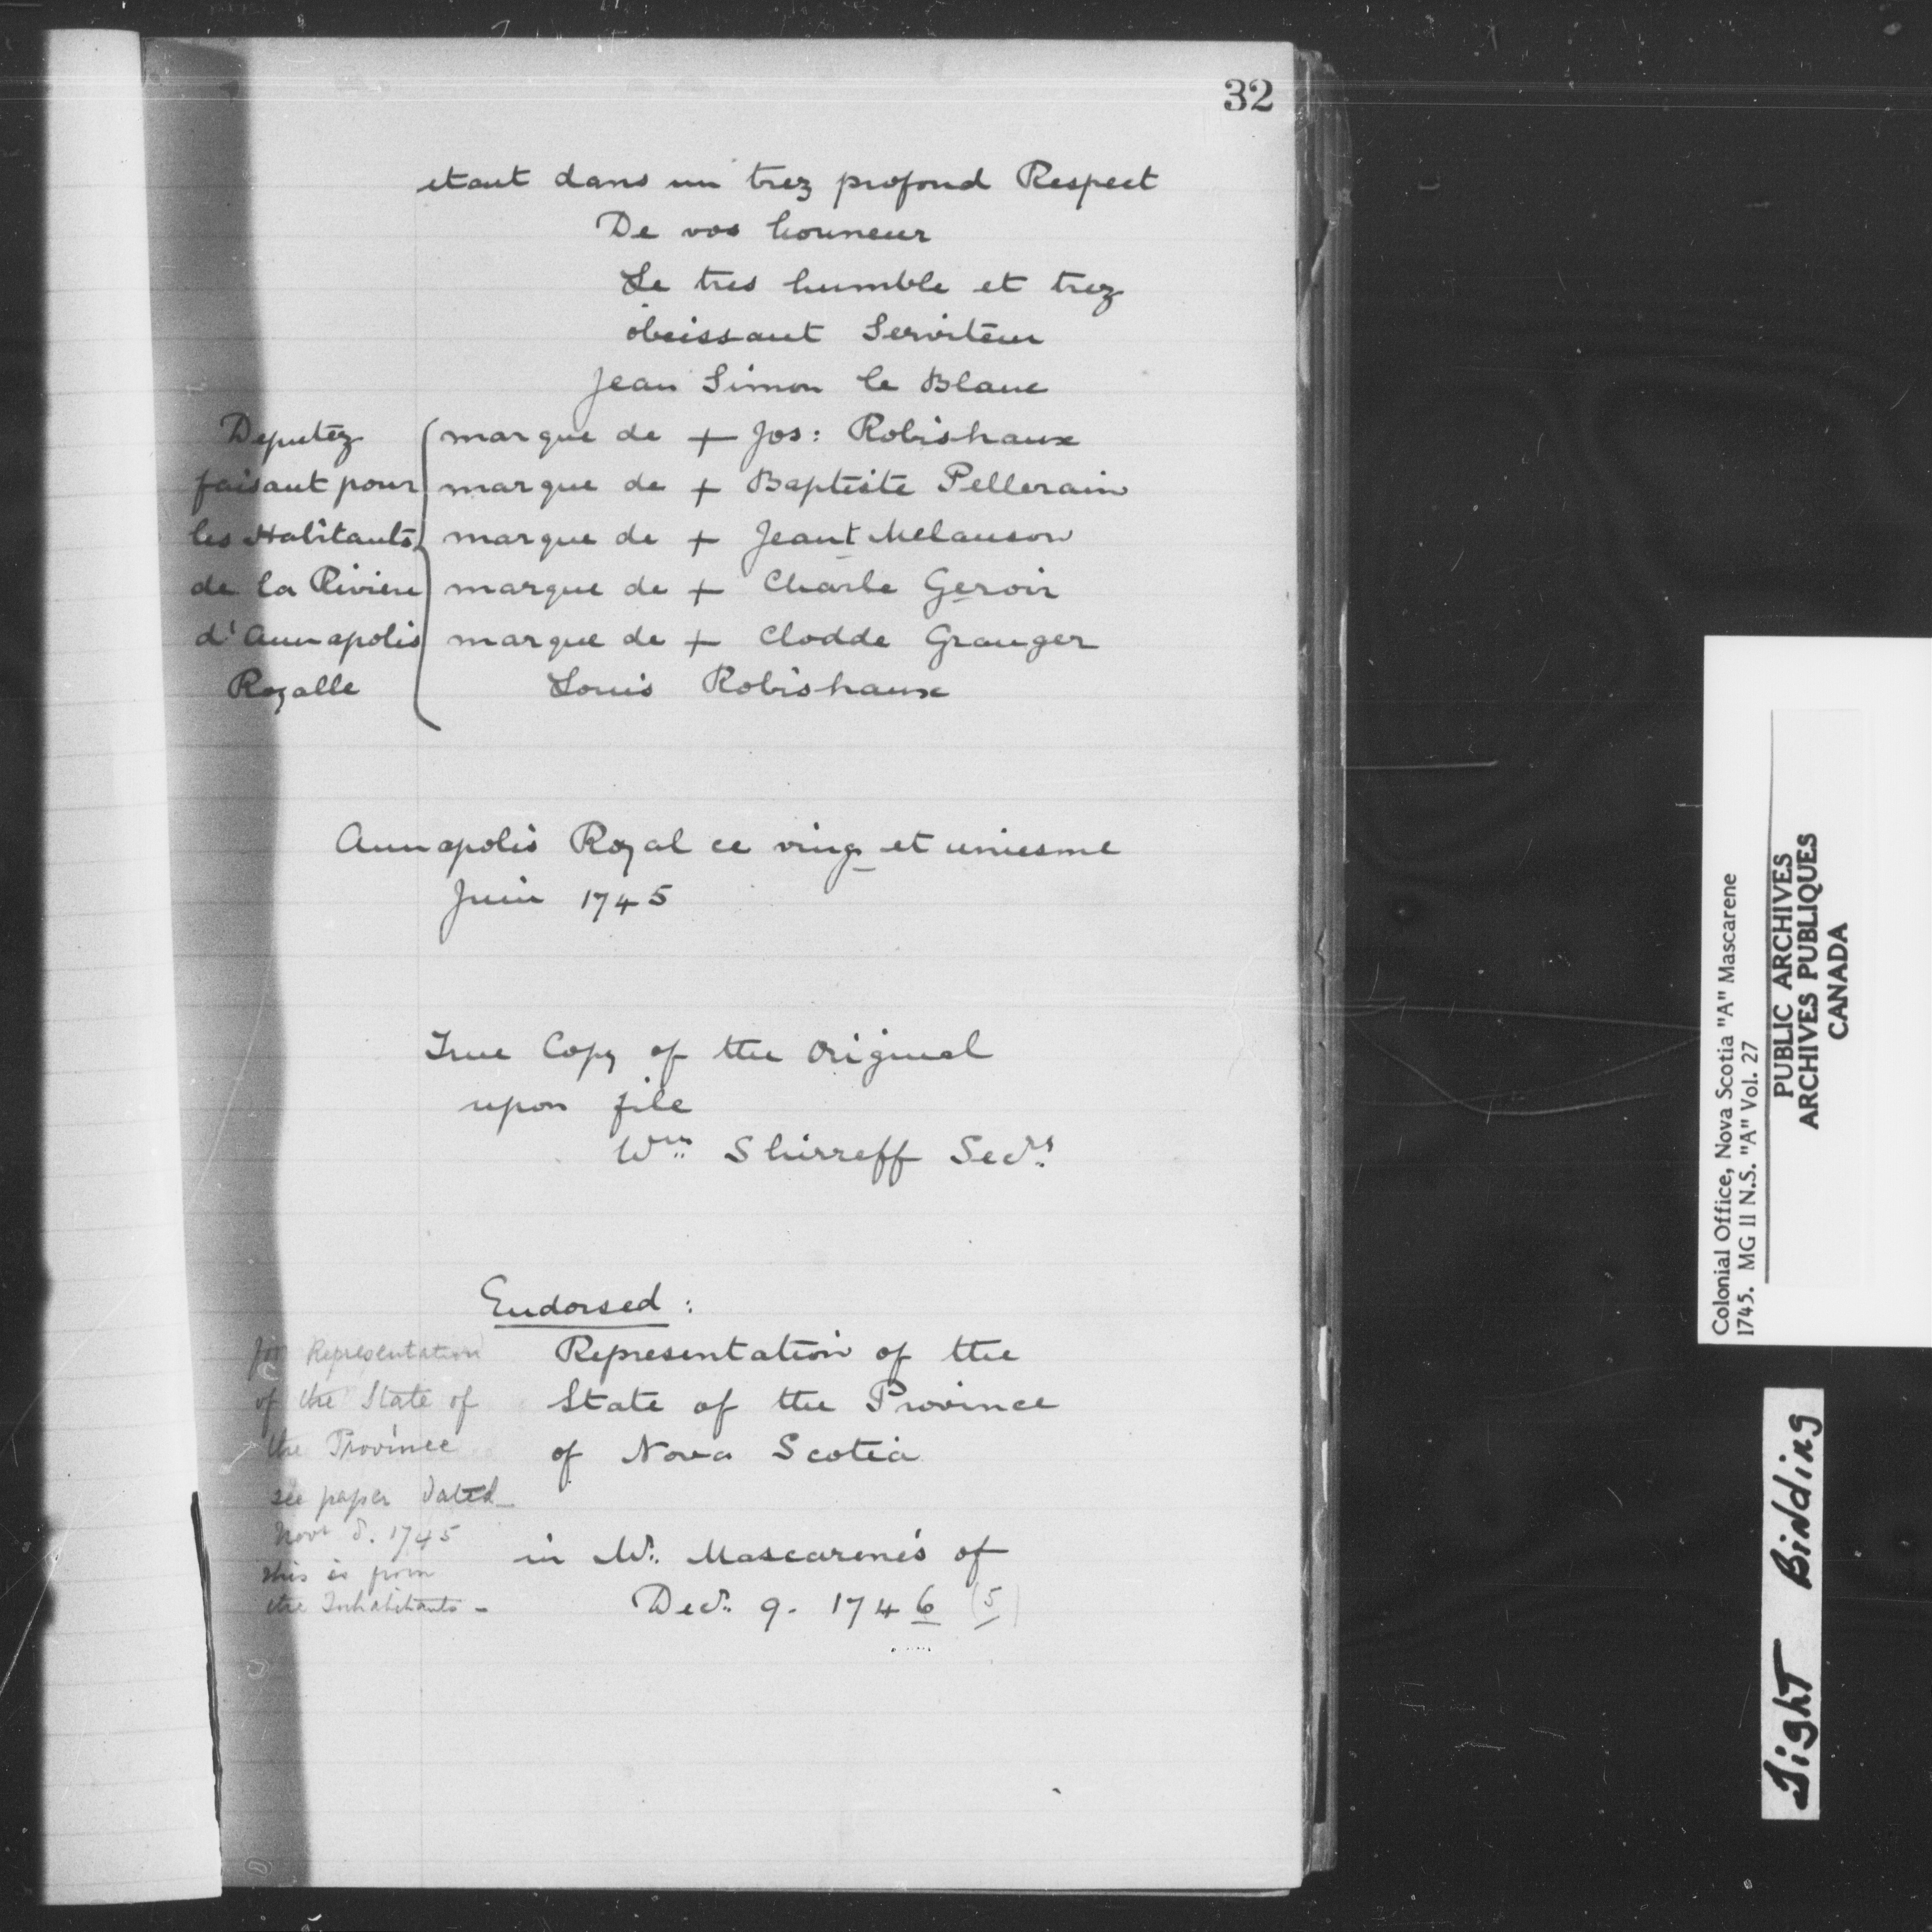 32
etant dans un trez profond Respect
De vos honneur
Le tres humble et trez
obeissant Serviteur
Jean Simon le Blanc
Deputez faisant pour les Habitants de la Riviere d'Annapolis Royalle
marque de + Jos: Robishaux
marque de + Baptiste Pellerain
marque de + Jeant Melanson
marque de + Charle Geroir
marque de + Clodde Granger
Louis Robishaux
Annapolis Royal ce ving et uniesme
Juin 1745
True Copy of the Original
upon file
Wm. Shirreff Secry.
Endorsed:
Representation of the
State of the Province
of Nova Scotia
in Mr. Mascarene's of
Decr. 9. 1746 (5)
for Representation
of the State of
the Province
see paper dated
Novr 8. 1745
this is from
the Inhabitants -
Colonial Office, Nova Scotia "A" Mascarene
1745. MG II N.S. "A" Vol. 27
PUBLIC ARCHIVES
ARCHIVES PUBLIQUES
CANADA
Tight Binding